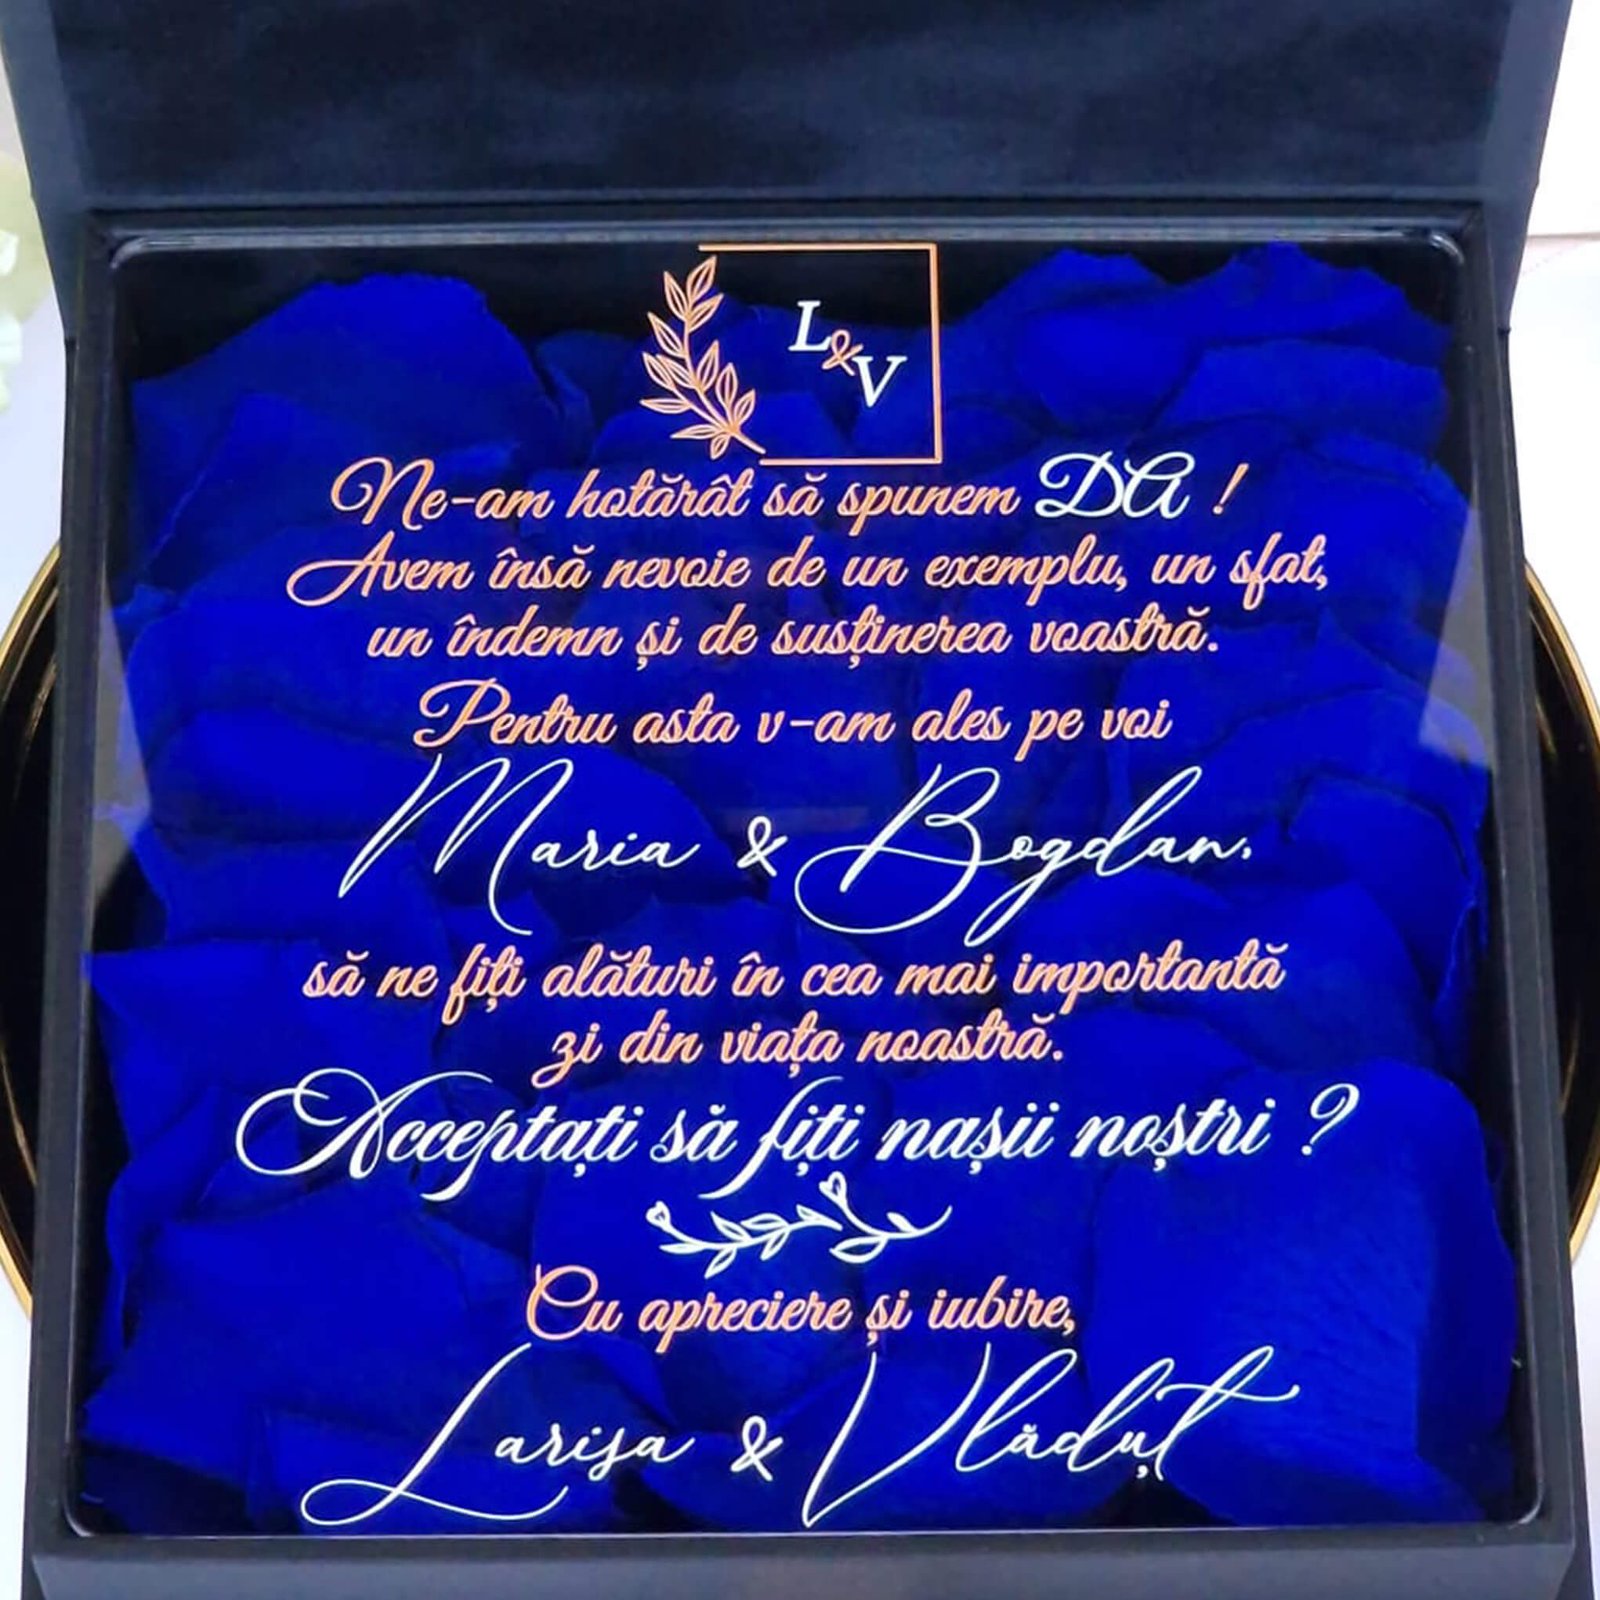 L&V
Ne-am hotărât să spunem DA !
Avem însă nevoie de un exemplu, un sfat,
un îndemn și de susținerea voastră.
Pentru asta v-am ales pe voi
Maria & Bogdan,
să ne fiți alături în cea mai importantă
zi din viața noastră.
Acceptați să fiți nașii noștri ?
Cu apreciere și iubire,
Larisa & Vlăduț